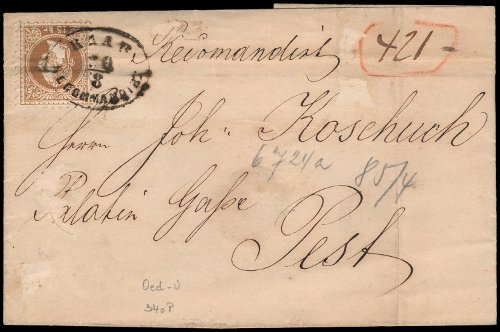 RAAB
20
8
RECOMMANDIRT
Recomandirt
421-
Herrn Joh: Koschuch
6724a
85/4
Palatin Gaße
Pest
Oed-U
340P